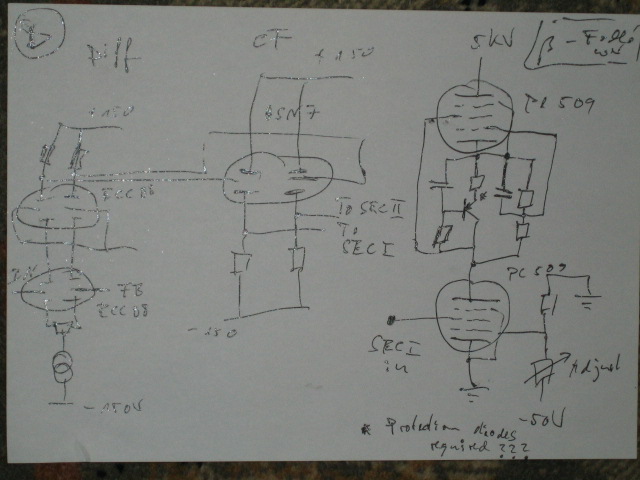 2
Diff
CF
5kV
β-Follower
+150
+150
6SN7
PL509
ECC88
TO SEC II
TO
SEC I
IN
FB
ECC88
PL509
-150
SEC I
in
Adjust
-150V
-50V
* Protection diodes
required ???